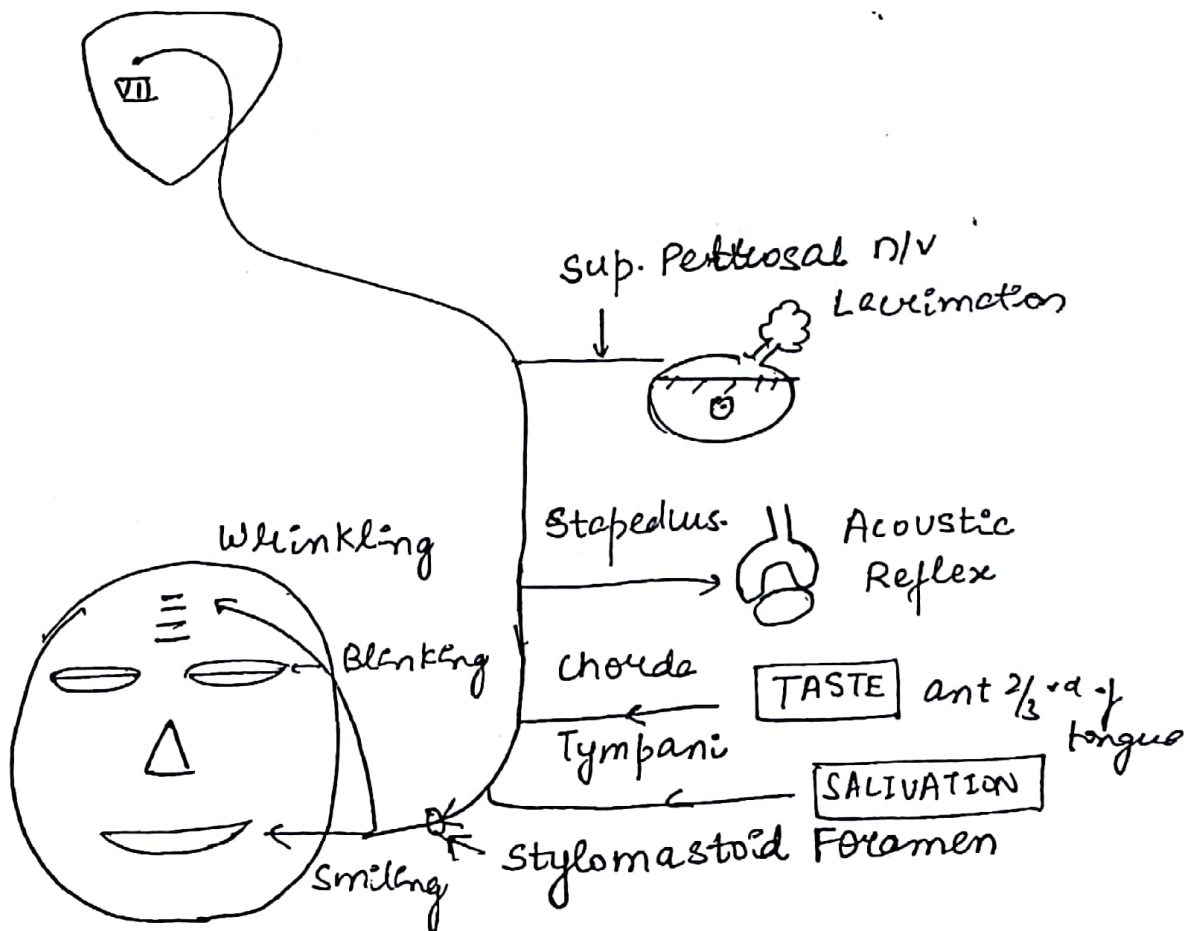 VII
Sup. Pettrosal n/v
Lacrimation
Stapedius.
Acoustic
Reflex
Wrinkling
Blinking
Chorda
Tympani
TASTE ant 2/3rd of
tongue
SALIVATION
Stylomastoid Foramen
Smiling